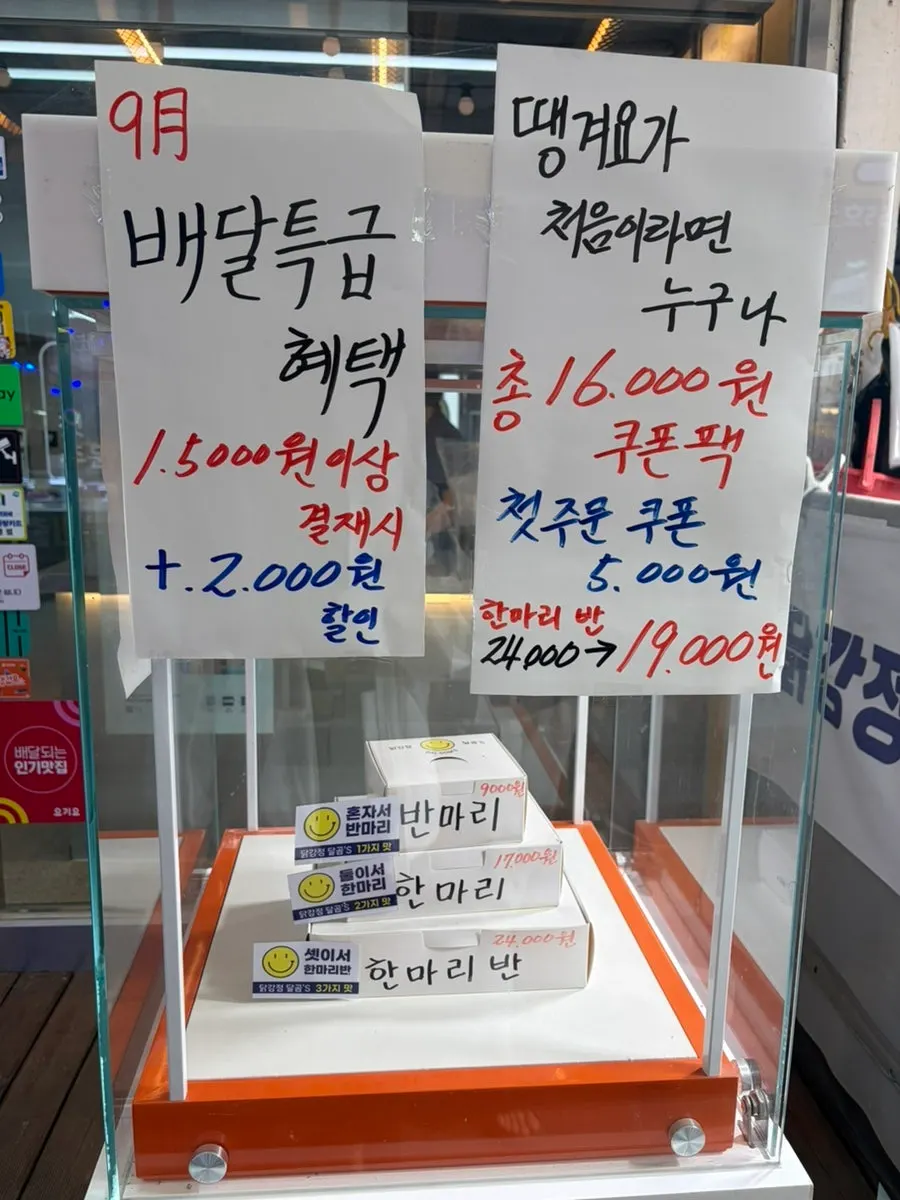 9月
배달특급
혜택
1.5000원이상
결재시
+.2.000원
할인
땡겨요가
처음이라면
누구나
총 16.000원
쿠폰팩
첫주문 쿠폰
5.000원
한마리 반
24,000→19.000원
9000원
반마리
혼자서
반마리
닭강정 달곰'S 1가지 맛
17,000원
한마리
둘이서
한마리
닭강정 달곰'S 2가지 맛
24,000원
한마리 반
셋이서
한마리반
닭강정 달곰'S 3가지 맛
배달되는
인기맛집
요기요
ay
CLOSE
강정